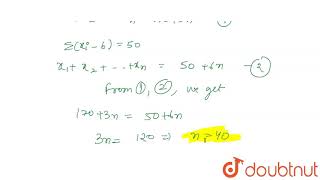 Σ(xi-6) = 50
x1 + x2 + - - + xn = 50 + 6n -②
from ①, ②, we get
170 + 3n = 50 + 6n
3n = 120 ⇒ n = 40
doubtnut